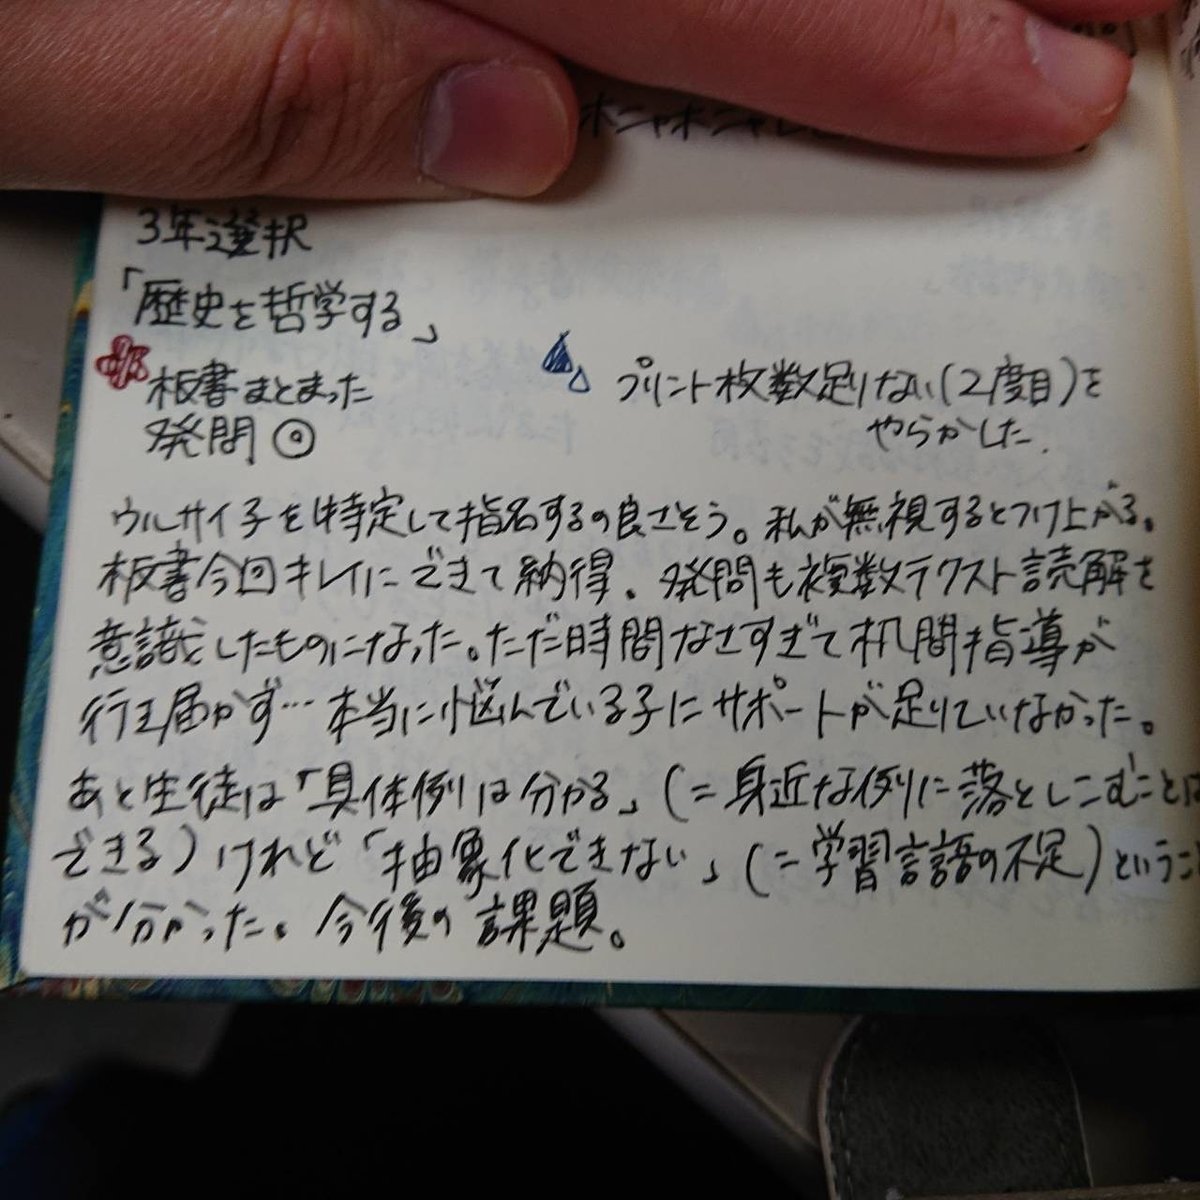 ホニャホニャ
3年選択
「歴史を哲学する」
板書まとまった
発問◎
プリント枚数足りない(2度目)を
やらかした.
ウルサイ子を特定して指名するの良さそう。私が無視するとつけ上がる。
板書今回キレイにできて納得。発問も複数テクスト読解を
意識したものになった。ただ時間なさすぎて机間指導が
行き届かず…本当に悩んでいる子にサポートが足りていなかった。
あと生徒は「具体例は分かる」(=身近な例に落としこむことは
できる)けれど「抽象化できない」(=学習言語の不足)ということ
が分かった。今後の課題。